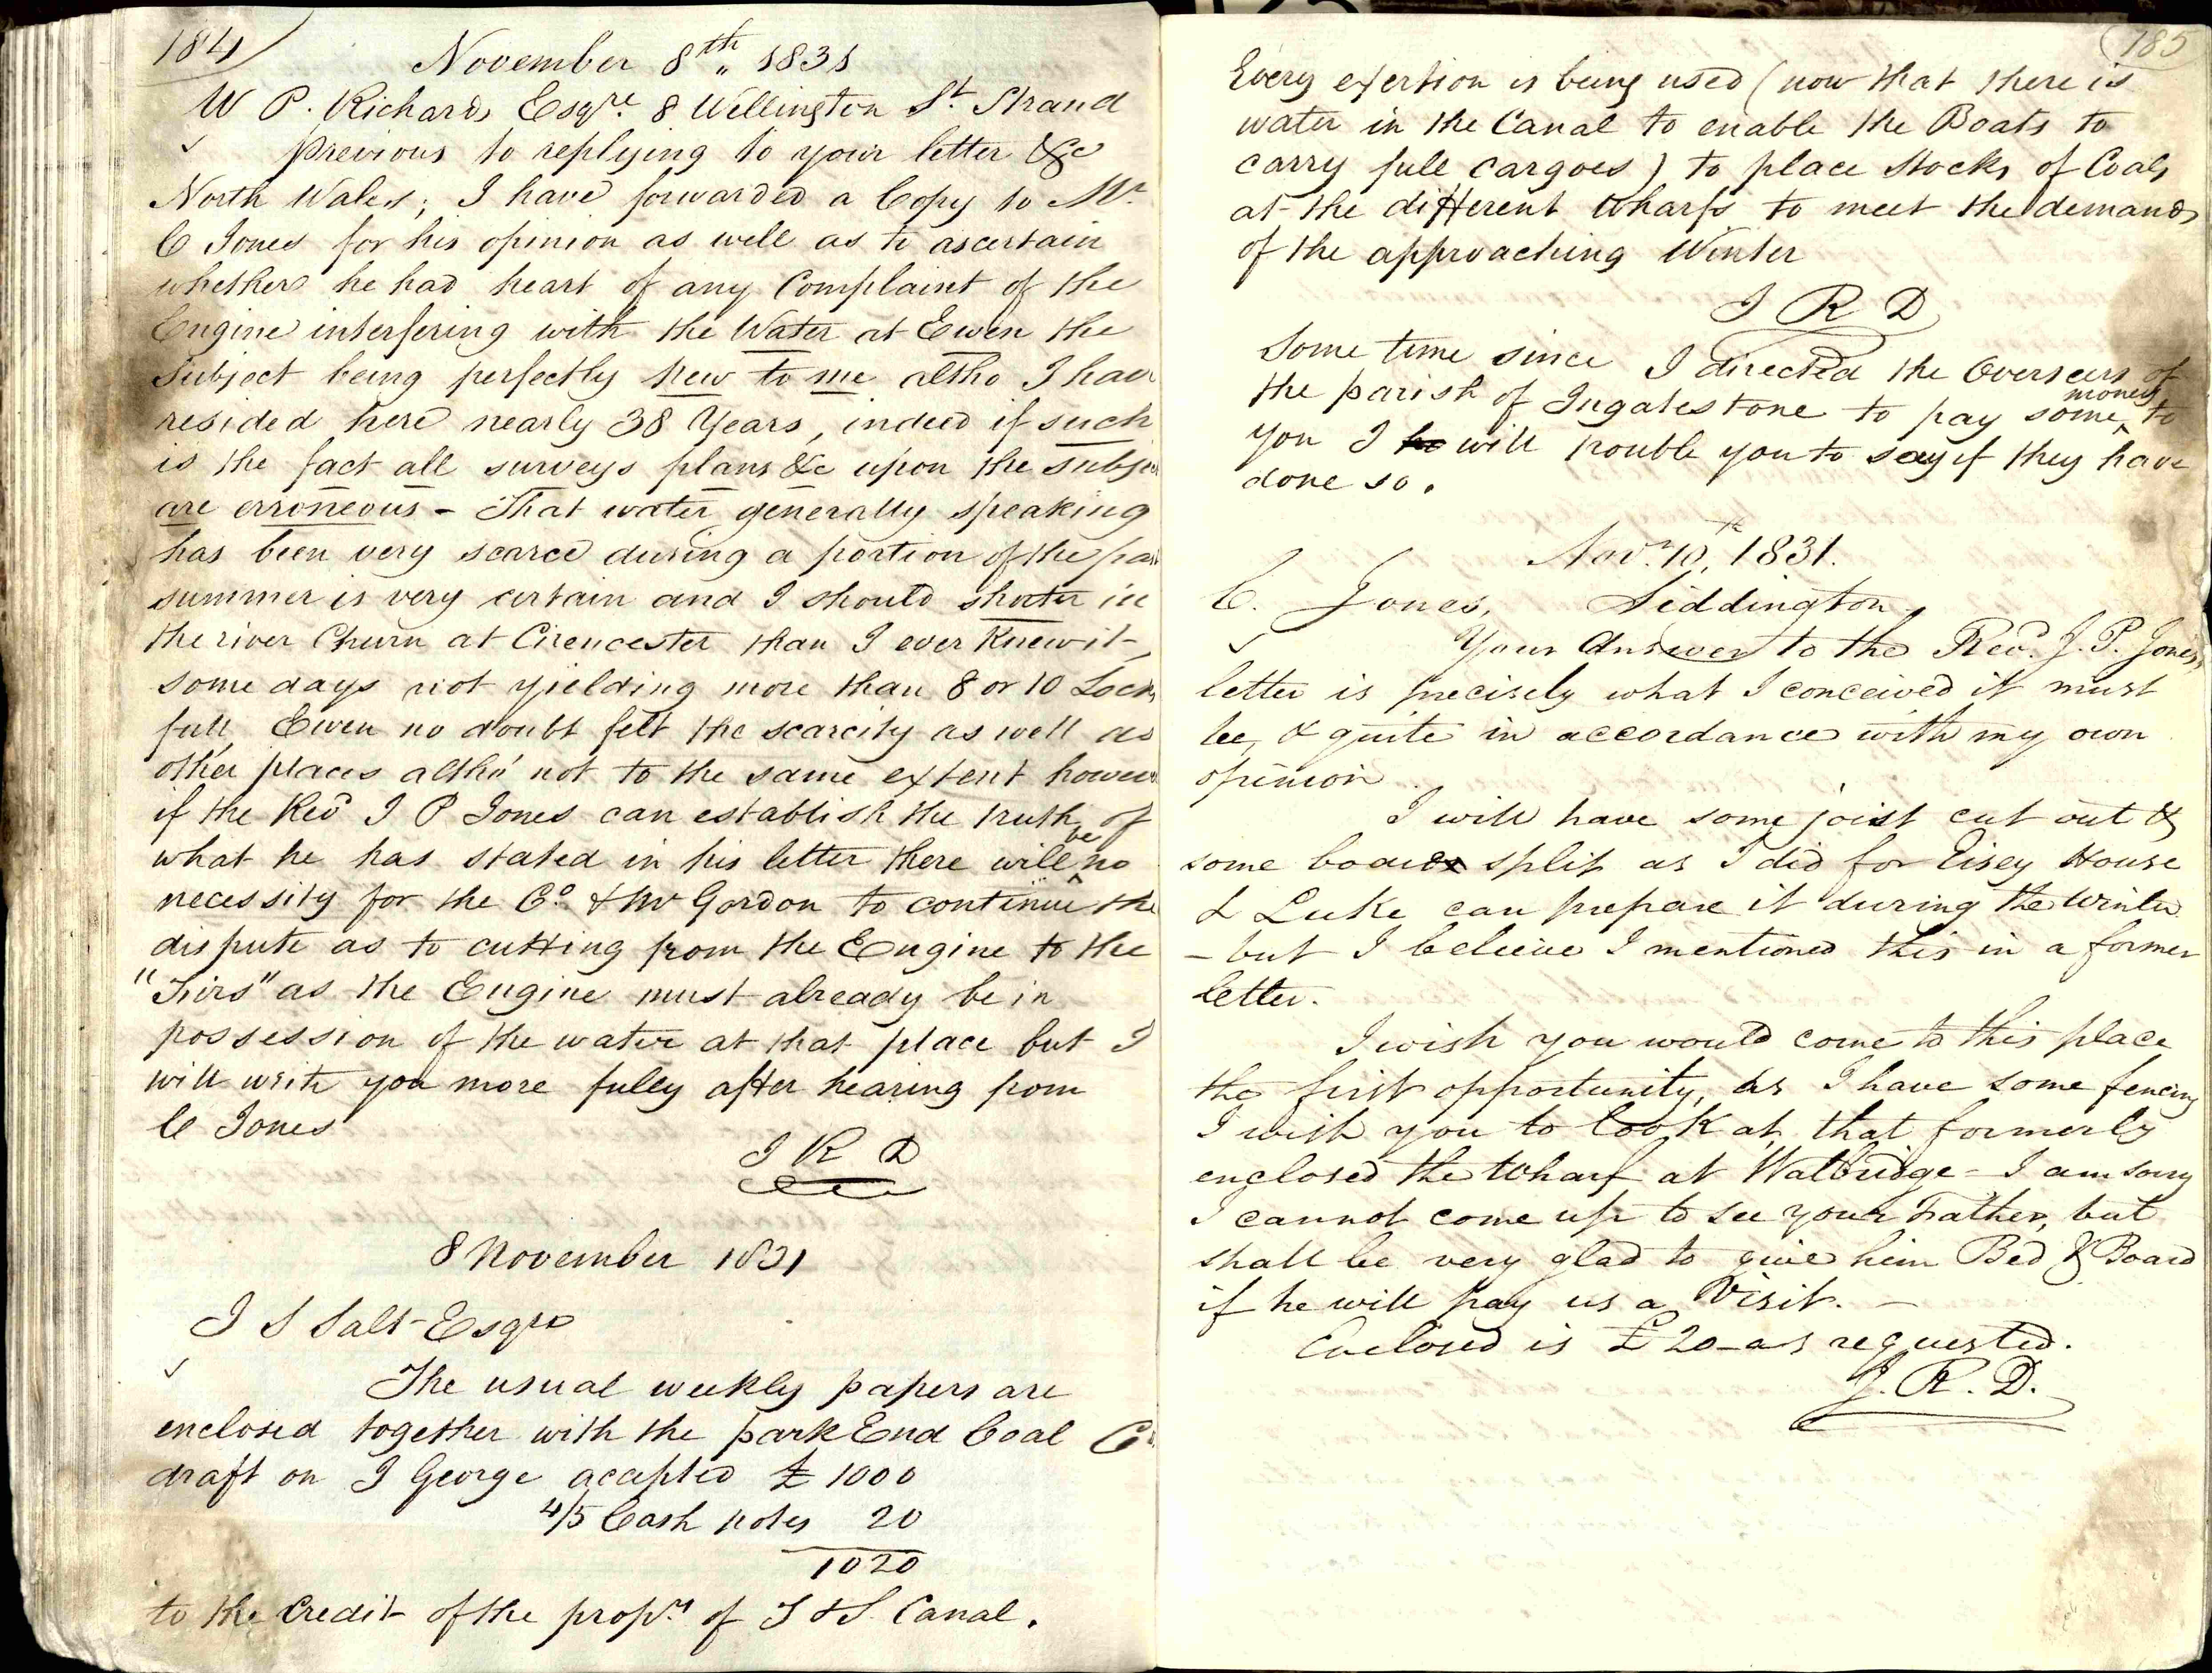 184
November 8th 1831
W P. Richards Esqre. 8 Wellington St. Strand
Previous to replying to your letter &c
North Wales; I have forwarded a Copy to Mr.
C Jones for his opinion as well as to ascertain
whether he had heart of any Complaint of the
Engine interfering with the Water at Ewen the
Subject being perfectly new to me altho I have
resided here nearly 38 Years, indeed if such
is the fact all surveys plans &c upon the subje
are erroneous - That water generally speaking
has been very scarce during a portion of the pas
summer is very certain and I should shorter in
the river Churn at Cirencester than I ever knew it-
some days not yielding more than 8 or 10 Locks
full, Ewen no doubt felt the scarcity as well as
other places altho' not to the same extent howev
if the Revd I P Jones can establish the truth of
what he has stated in his letter there will be no
necessity for the Co. & Mr Gordon to continue the
dispute as to cutting from the Engine to the
"Firs" as the Engine must already be in
possession of the water at that place but I
will write you more fully after hearing from
C Jones
I R D
8 November 1831
I S Salt Esqre
The usual weekly papers are
enclosed together with the park End Coal Co.
draft on I George accepted £ 1000
4/5 Cash notes 20
1020
to the Credit of the proprs of T & S. Canal.
185
Every exertion is being used (now that there is
water in the Canal to enable the Boats to
carry full cargoes) to place Stocks of Coals
at the different Wharfs to meet the demands
of the approaching Winter
I R D
Some time since I directed the Overseers of
the parish of Ingatestone to pay some money to
you I he will trouble you to say if they have
done so.
Novr. 10th, 1831.
C. Jones, Siddington
Your Answer to the Revd. J. P. Jones,
letter is precisely what I conceived it must
be, & quite in accordance with my own
opinion
I will have some joist cut out &
some split as I did for Eisey House
& Luke can prepare it during the Winter
- but I believe I mentioned this in a former
letter.
I wish you would come to this place
the first opportunity, as I have some fencing
I wish you to look at, that formerly
enclosed the Wharf at Walbridge - I am sorry
I cannot come up to see your Father, but
shall be very glad to give him Bed & Board
if he will pay us a Visit. -
Enclosed is £20 - as requested.
J. R. D.